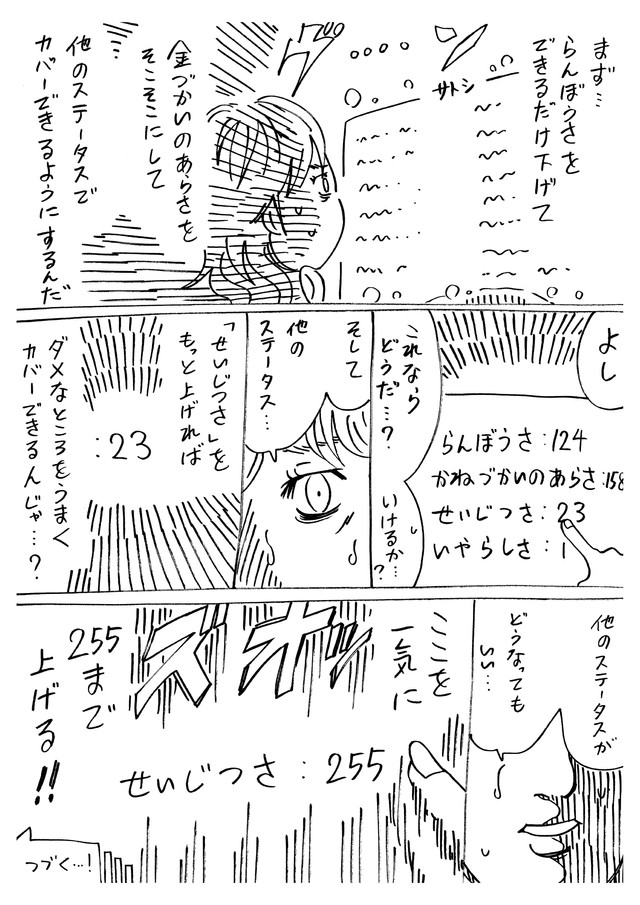 まず…
らんぼうさを
できるだけ下げて
サトシ
グッ
金づかいのあらさを
そこそこにして
他のステータスで
カバーできるようにするんだ
よし
らんぼうさ:124
かねづかいのあらさ:158
せいじつさ:23
いやらしさ:1
これなら
どうだ…?
いけるか…?
そして
他の
ステータス…
「せいじつさ」を
もっと上げれば
:23
ダメなところをうまく
カバーできるんじゃ…?
他のステータスが
どうなっても
いい…
ここを
一気に
255まで
上げる!!
せいじつさ:255
つづく…!